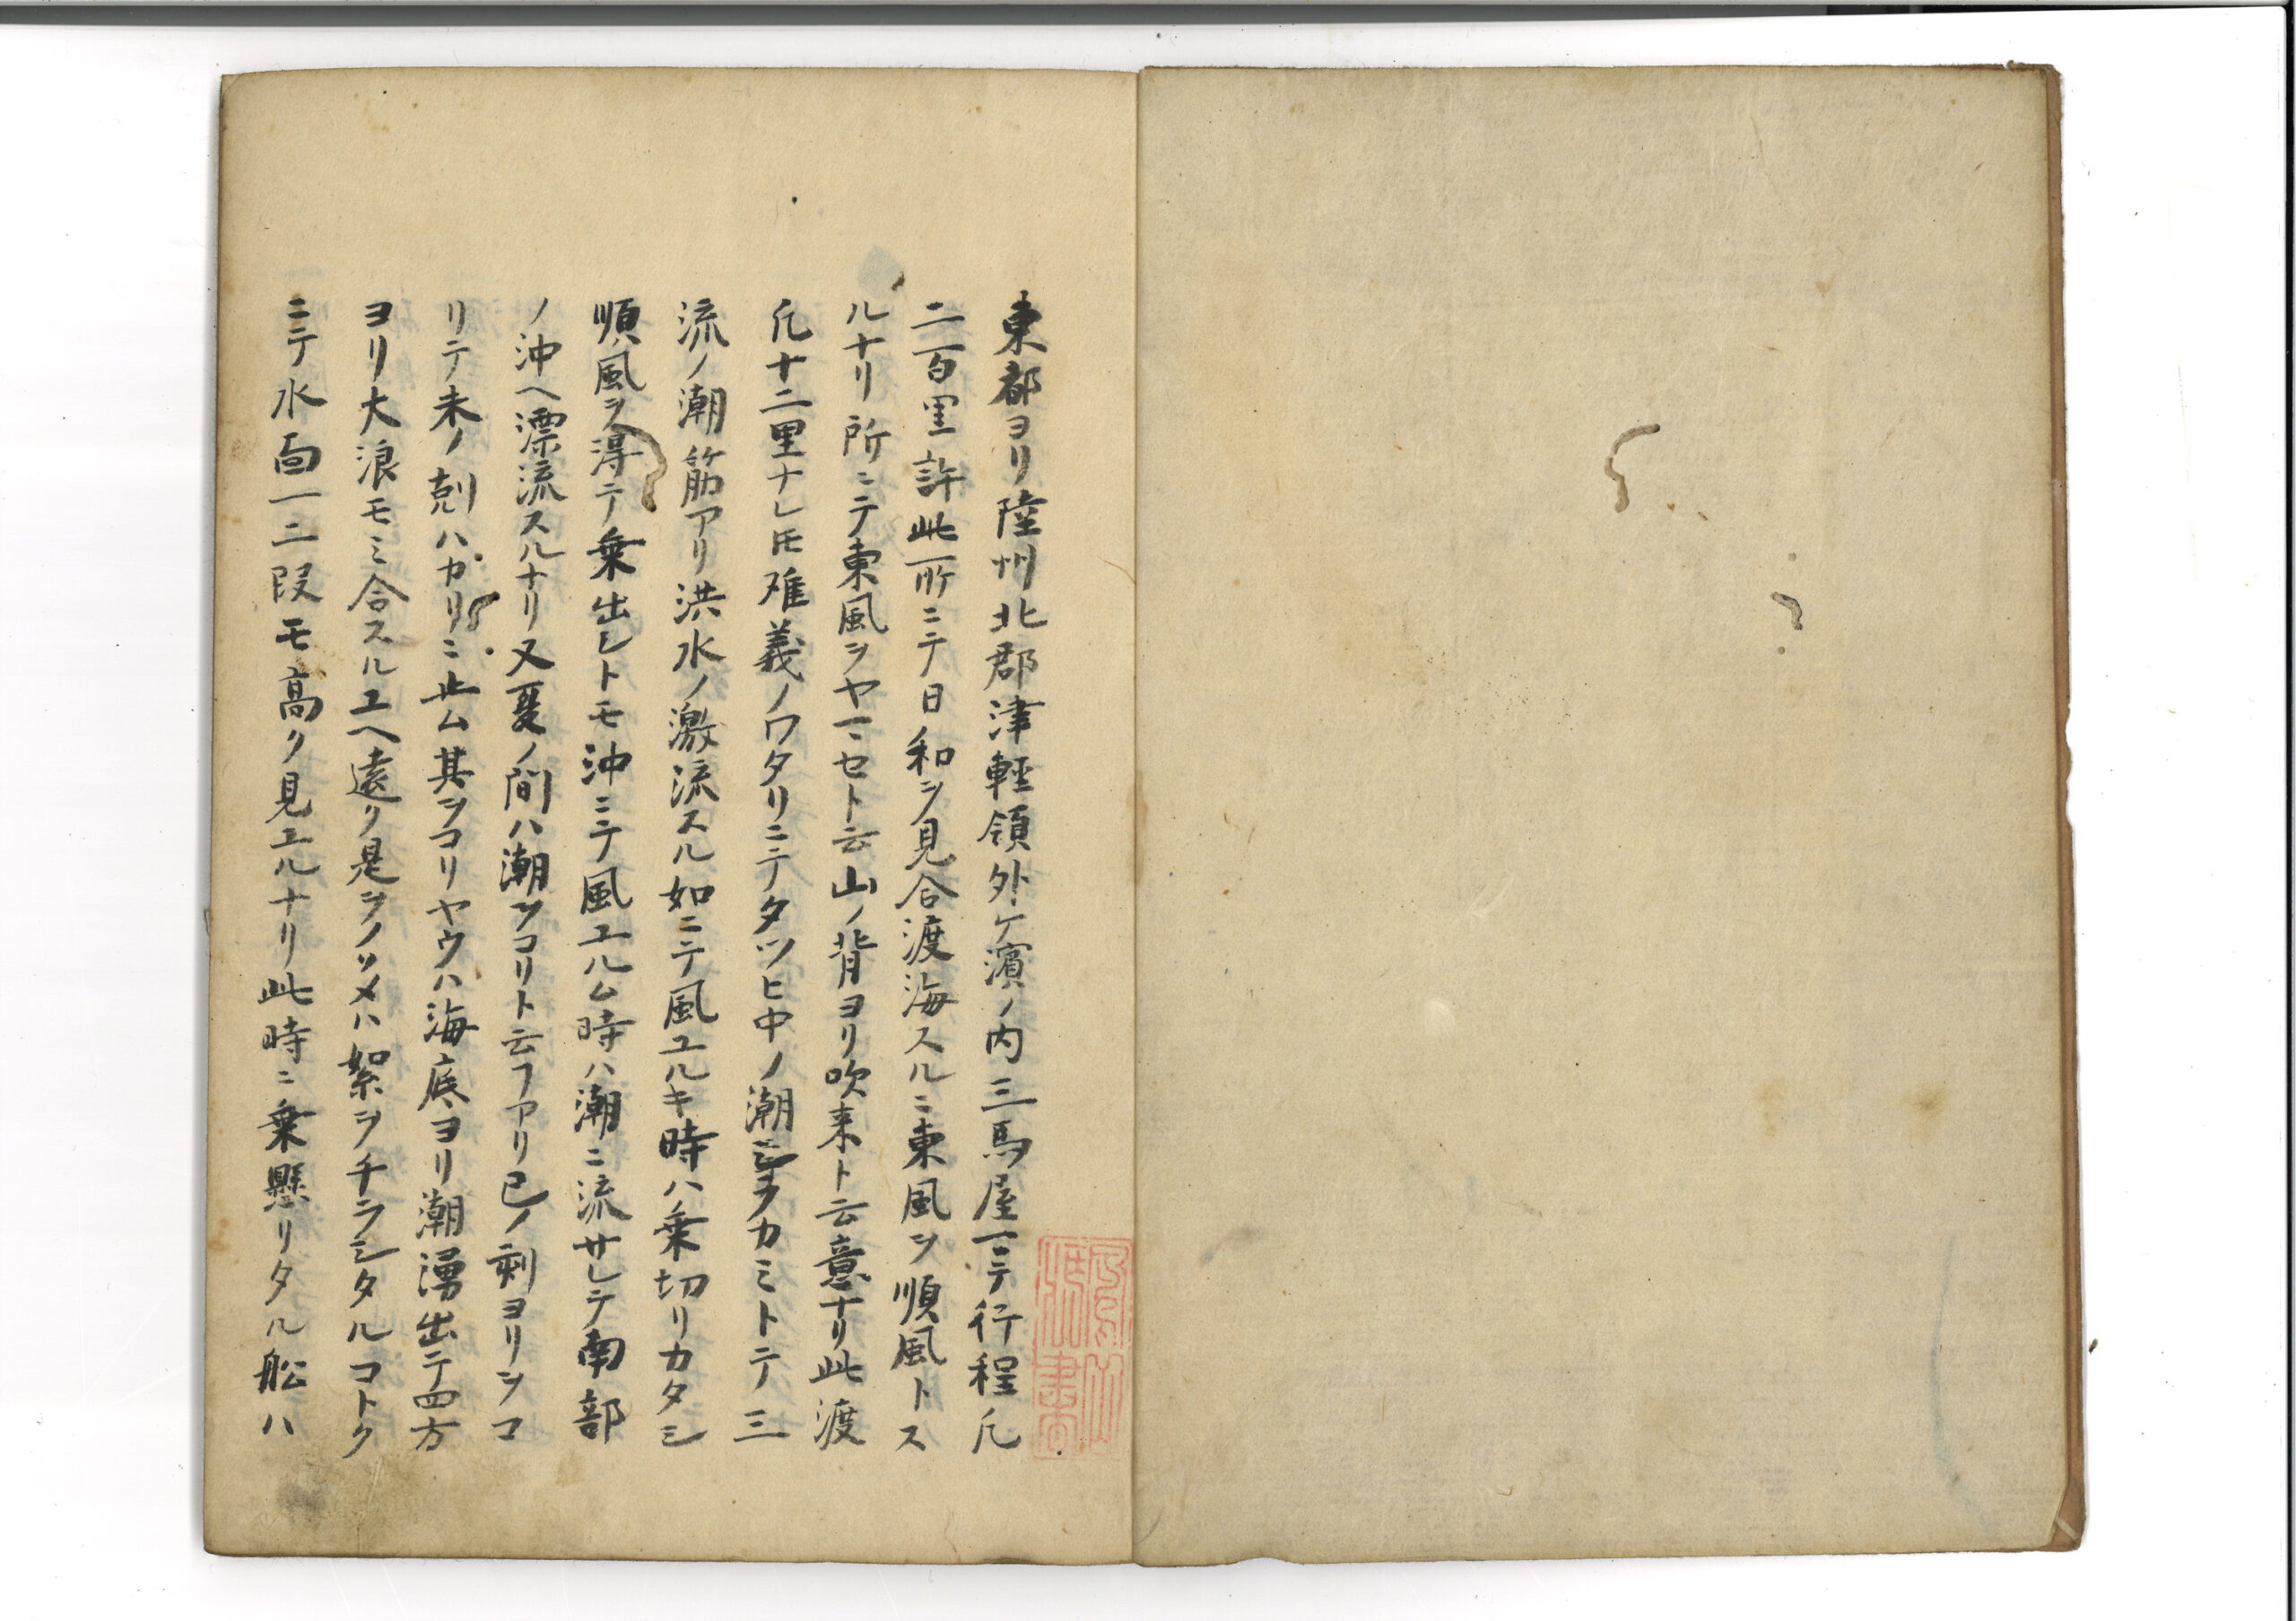 東都ヨリ陸州北郡津軽領外ケ濱ノ内三馬屋ニテ行程凡
二百里許此所ニテ日和ヲ見合渡海スルニ東風ヲ順風トス
ルナリ所ニテ東風ヲヤマセト云山ノ背ヨリ吹来ト云意ナリ此渡
凡十二里ナレ𪜈难義ノワタリニテタツヒ中ノ潮シラカミトテ三
流ノ潮筋アリ洪水ノ激流スル如ニテ風ユルキ時ハ乗切リカタシ
順風ヲ淂テ乗出シトモ沖ニテ風ユルム時ハ潮ニ流サレテ南部
ノ沖ヘ漂流スルナリ又夏ノ間ハ潮ソコリト云フアリ巳ノ刻ヨリソコ
リテ未ノ剋ハカリニ止ム其ソコリヤウハ海底ヨリ潮湧出テ四方
ヨリ大浪モミ合スルユヘ遠ク是ヲノソメハ絮ヲチラシタルコトク
ニテ水面一二段モ高ク見エルナリ此時ニ乗懸リタル舩ハ